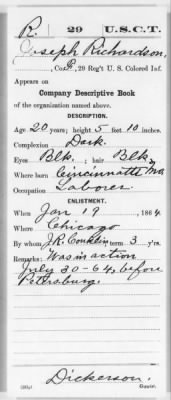 R. 29 U.S.C.T.
Joseph Richardson,
, Co. B, 29 Reg't U. S. Colored Inf.
Appears on
Company Descriptive Book
of the organization named above.
DESCRIPTION.
Age 20 years; height 5 feet 10 inches.
Complexion Dark.
Eyes Blk.; hair Blk.
Where born Cincinnatti, Mo.
Occupation Laborer.
ENLISTMENT.
When Jan 19, 1864.
Where Chicago
By whom J.R. Conklin; term 3 y'rs.
Remarks: Was in action
July 30-64, before
Petersburg.
Dickerson.
Copyist.